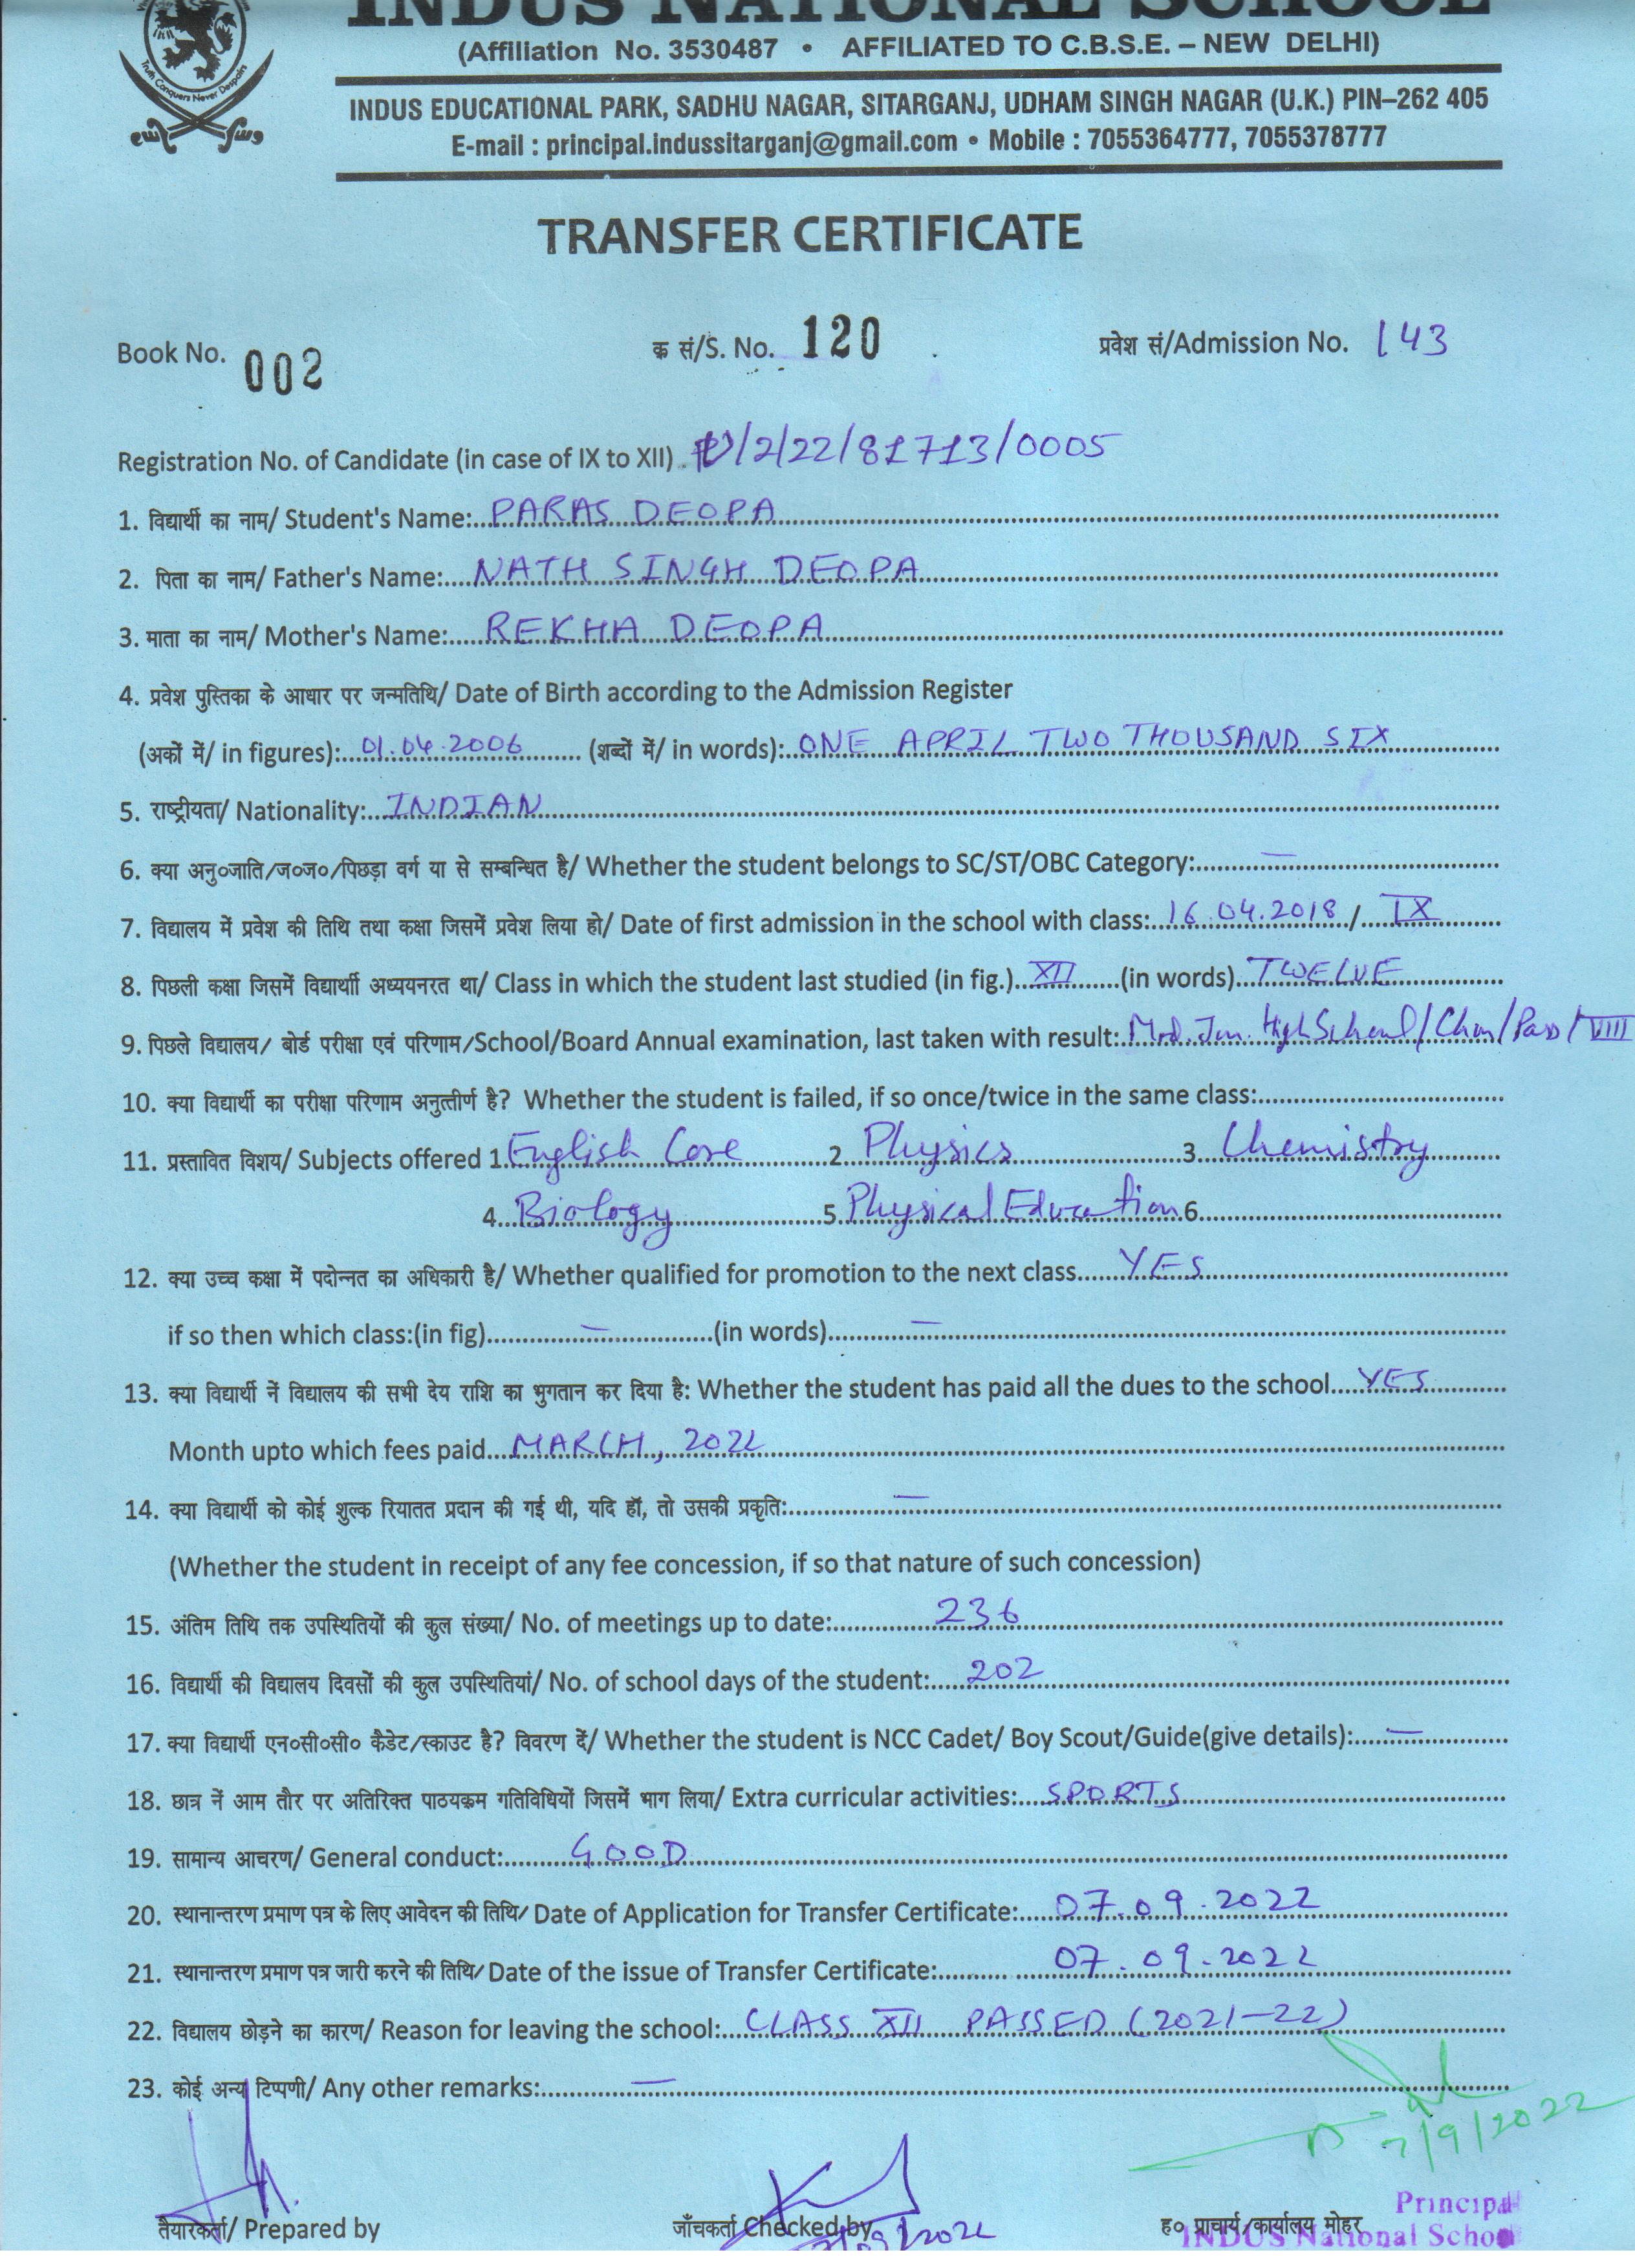 INDUS NATIONAL SCHOOL
Truth Conquers Never Despairs
(Affiliation No. 3530487 • AFFILIATED TO C.B.S.E. – NEW DELHI)
INDUS EDUCATIONAL PARK, SADHU NAGAR, SITARGANJ, UDHAM SINGH NAGAR (U.K.) PIN–262 405
E-mail : principal.indussitarganj@gmail.com • Mobile : 7055364777, 7055378777
TRANSFER CERTIFICATE
Book No. 002 क्र सं/S. No. 120 प्रवेश सं/Admission No. 143
Registration No. of Candidate (in case of IX to XII) /2/22/81713/0005
1. विद्यार्थी का नाम/ Student's Name: PARAS DEOPA
2. पिता का नाम/ Father's Name: NATH SINGH DEOPA
3. माता का नाम/ Mother's Name: REKHA DEOPA
4. प्रवेश पुस्तिका के आधार पर जन्मतिथि/ Date of Birth according to the Admission Register
(अकों में/ in figures): 01.04.2006 (शब्दों में/ in words): ONE APRIL TWO THOUSAND SIX
5. राष्ट्रीयता/ Nationality: INDIAN
6. क्या अनु०जाति/ज०ज०/पिछड़ा वर्ग या से सम्बन्धित है/ Whether the student belongs to SC/ST/OBC Category: —
7. विद्यालय में प्रवेश की तिथि तथा कक्षा जिसमें प्रवेश लिया हो/ Date of first admission in the school with class: 16.04.2018 / IX
8. पिछली कक्षा जिसमें विद्यार्थी अध्ययनरत था/ Class in which the student last studied (in fig.) XII (in words) TWELVE
9. पिछले विद्यालय/ बोर्ड परीक्षा एवं परिणाम/School/Board Annual examination, last taken with result: High School / Pass / VIII
10. क्या विद्यार्थी का परीक्षा परिणाम अनुत्तीर्ण है? Whether the student is failed, if so once/twice in the same class:
11. प्रस्तावित विशय/ Subjects offered 1. English Core 2. Physics 3. Chemistry
4. Biology 5. Physical Education 6.
12. क्या उच्च कक्षा में पदोन्नत का अधिकारी है/ Whether qualified for promotion to the next class YES
if so then which class:(in fig) — (in words) —
13. क्या विद्यार्थी नें विद्यालय की सभी देय राशि का भुगतान कर दिया है: Whether the student has paid all the dues to the school YES
Month upto which fees paid MARCH, 2022
14. क्या विद्यार्थी को कोई शुल्क रियातत प्रदान की गई थी, यदि हॉ, तो उसकी प्रकृति: —
(Whether the student in receipt of any fee concession, if so that nature of such concession)
15. अंतिम तिथि तक उपस्थितियों की कुल संख्या/ No. of meetings up to date: 236
16. विद्यार्थी की विद्यालय दिवसों की कुल उपस्थितियां/ No. of school days of the student: 202
17. क्या विद्यार्थी एन०सी०सी० कैडेट/स्काउट है? विवरण दें/ Whether the student is NCC Cadet/ Boy Scout/Guide(give details): —
18. छात्र नें आम तौर पर अतिरिक्त पाठयक्रम गतिविधियों जिसमें भाग लिया/ Extra curricular activities: SPORTS
19. सामान्य आचरण/ General conduct: GOOD
20. स्थानान्तरण प्रमाण पत्र के लिए आवेदन की तिथि/ Date of Application for Transfer Certificate: 07.09.2022
21. स्थानान्तरण प्रमाण पत्र जारी करने की तिथि/ Date of the issue of Transfer Certificate: 07.09.2022
22. विद्यालय छोड़ने का कारण/ Reason for leaving the school: CLASS XII PASSED (2021-22)
23. कोई अन्य टिप्पणी/ Any other remarks: —
7/9/2022
तैयारकर्ता/ Prepared by जाँचकर्ता Checked by ह० प्राचार्य/कार्यालय मोहर
Principal
INDUS National School